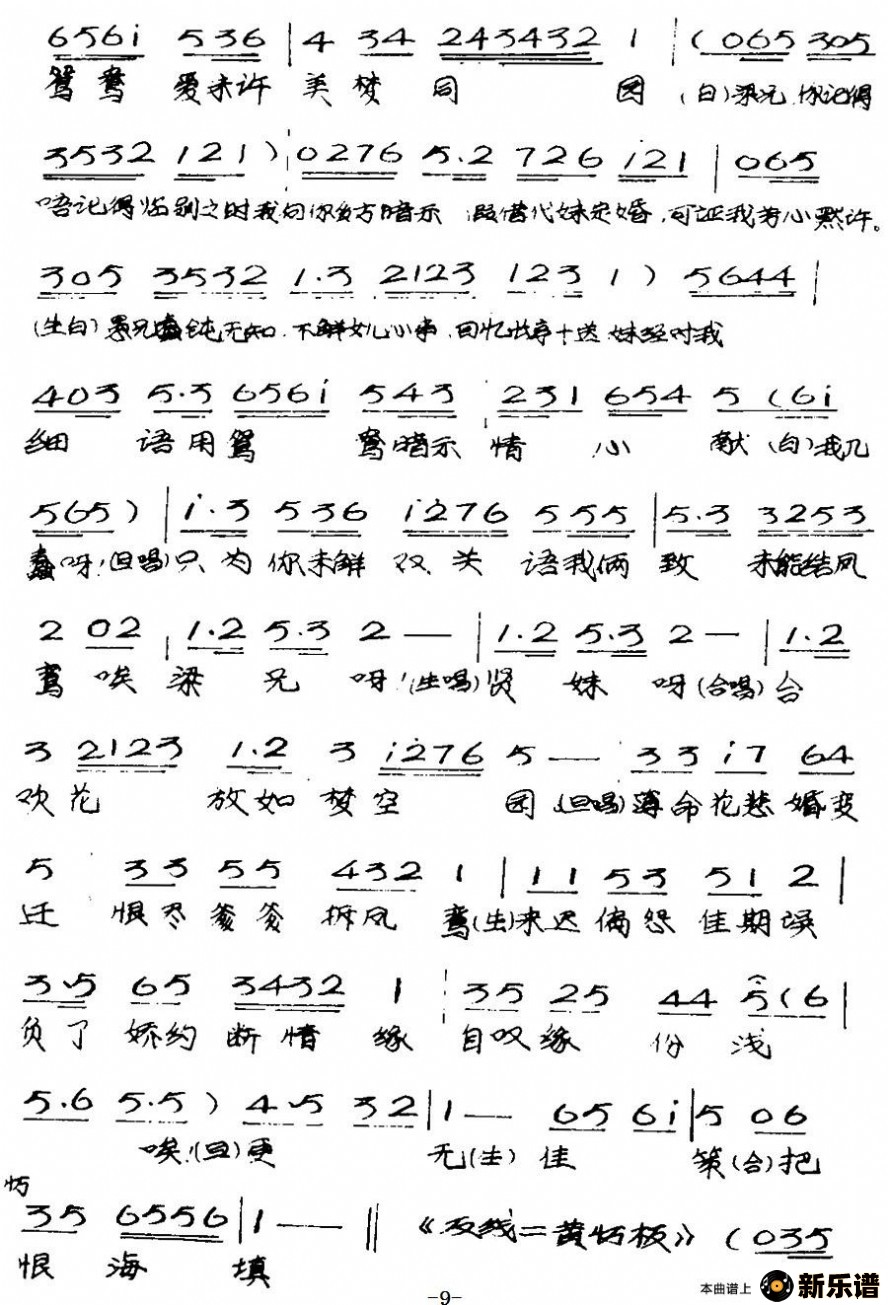 656i 536 | 4 34 243432 1 | (065 305
鸳鸯 爱未许 美梦 同 园 (白)梁兄,你记得
3532 121) 0276 5.2 726 i21 | 065
唔记得临别之时我向你多方暗示 假借代妹定婚,可证我芳心默许。
305 3532 1.3 2123 123 1) 5644 |
(生白)愚兄蠢钝无知.不解女儿心事.回忆长亭十送.妹经对我
403 5.3 656i 543 231 654 5 (6i
细 语用鸳 鸯暗示 情 心 献 (白)我几
565) | i.3 536 i276 555 | 5.3 3253
蠢呀!(旦唱)只为你未解 双关 语我俩 致 未能结凤
2 02 1.2 5.3 2 — | 1.2 5.3 2 — | 1.2
鸾 唉 梁 兄 呀!(生唱)贤 妹 呀(合唱)合
3 2123 1.2 3 i276 5 — 33 i7 64
欢 花 放如 梦 空 园 (旦唱)薄命花愁 婚变
5 33 55 432 1 | 11 53 51 2 |
迁 恨尽爹爹 拆凤 鸾(生)来迟偏怨 佳期误
3.5 65 3432 1 35 25 44 5(6 |
负了 娇约 断情 缘 自叹缘 份 浅
5.6 5.5) 4.5 32 | 1 — 65 6i | 5 06
唉!(旦)更 无(生)佳 策(合)把
35 6556 | 1 — — ‖ 《反线二黄慢板》 (035
恨 海 填
-9-
本曲谱上 新乐谱